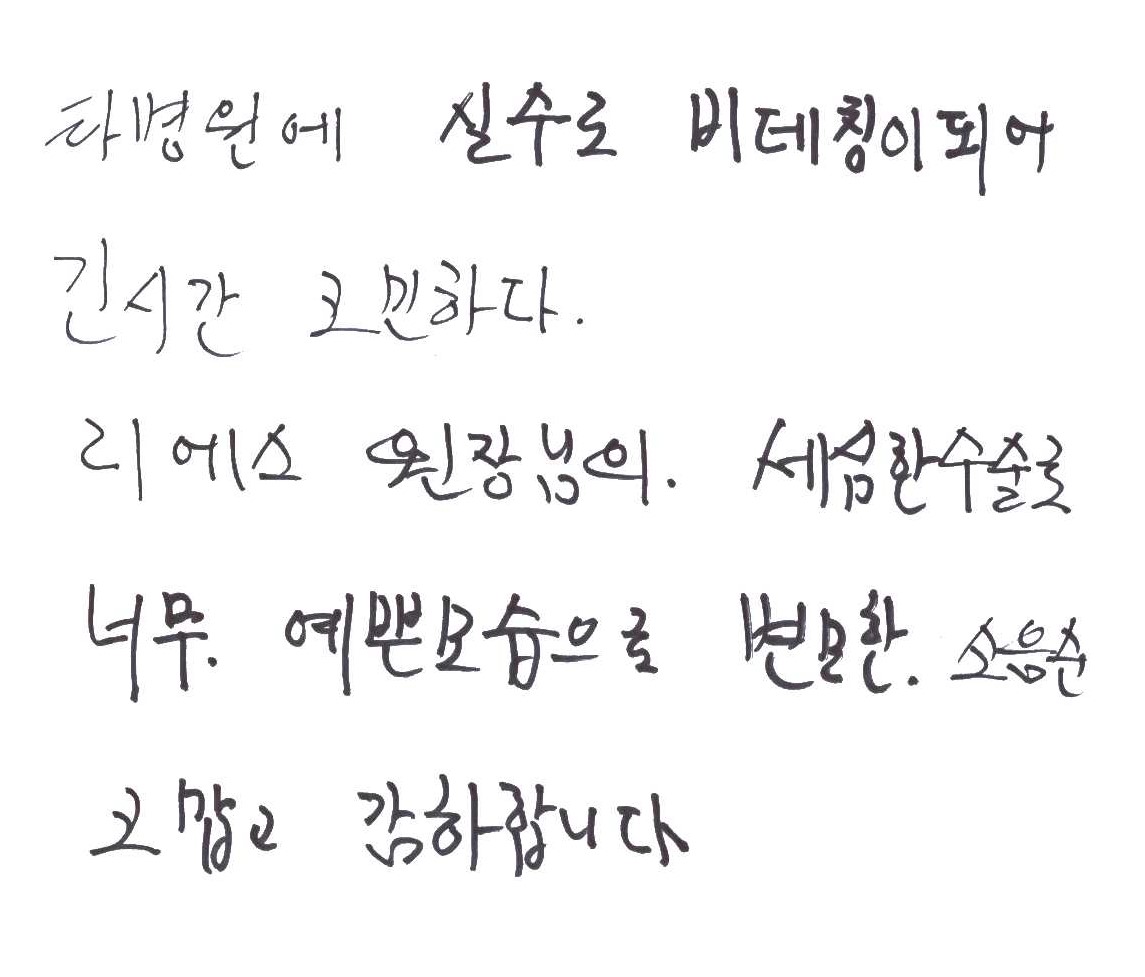 타병원에 실수로 비대칭이되어
긴시간 고민하다.
리에스 원장님의. 세심한수술로
너무. 예쁜모습으로 변모한. 소음순
고맙고 감하합니다